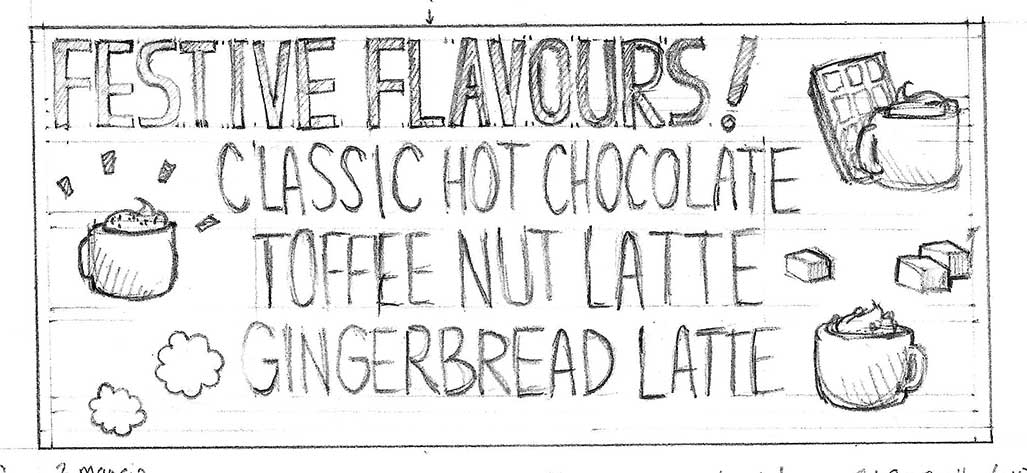 FESTIVE FLAVOURS!
CLASSIC HOT CHOCOLATE
TOFFEE NUT LATTE
GINGERBREAD LATTE